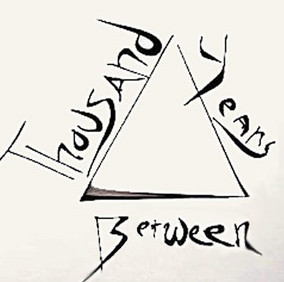 Thousand
Years
Between